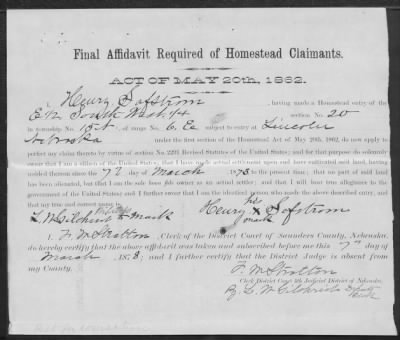 Final Affidavit Required of Homestead Claimants.
ACT OF MAY 20th, 1862.
I, Henry Safstrom, having made a Homestead entry of the
E 1/2 South West 1/4 section No. 20
in township No. 15 N, of range No. 6 E subject to entry at Lincoln
Nebraska under the first section of the Homestead Act of May 20th, 1862, do now apply to
perfect my claim thereto by virtue of section No. 2291 Revised Statutes of the United States; and for that purpose do solemnly
that I am a citizen of the United States; that I have made actual settlement upon and have cultivated said land, having
resided thereon since the 7th day of March 1873 to the present time; that no part of said land
has been alienated, but that I am the sole bona fide owner as an actual settler; and that I will bear true allegiance to the
government of the United States; and I further swear that I am the identical person who made the above described entry, and
that my true and correct name is
his
Henry x Safstrom
mark
L W Gilchrist Witness to mark
I, F M Stratton, Clerk of the District Court of Saunders County, Nebraska,
do hereby certify that the above affidavit was taken and subscribed before me this 7th day of
March, 1878; and I further certify that the District Judge is absent from
my County.
F. M Stratton
Clerk District Court 4th Judicial District of Nebraska.
By L W Gilchrist Deputy
Clerk